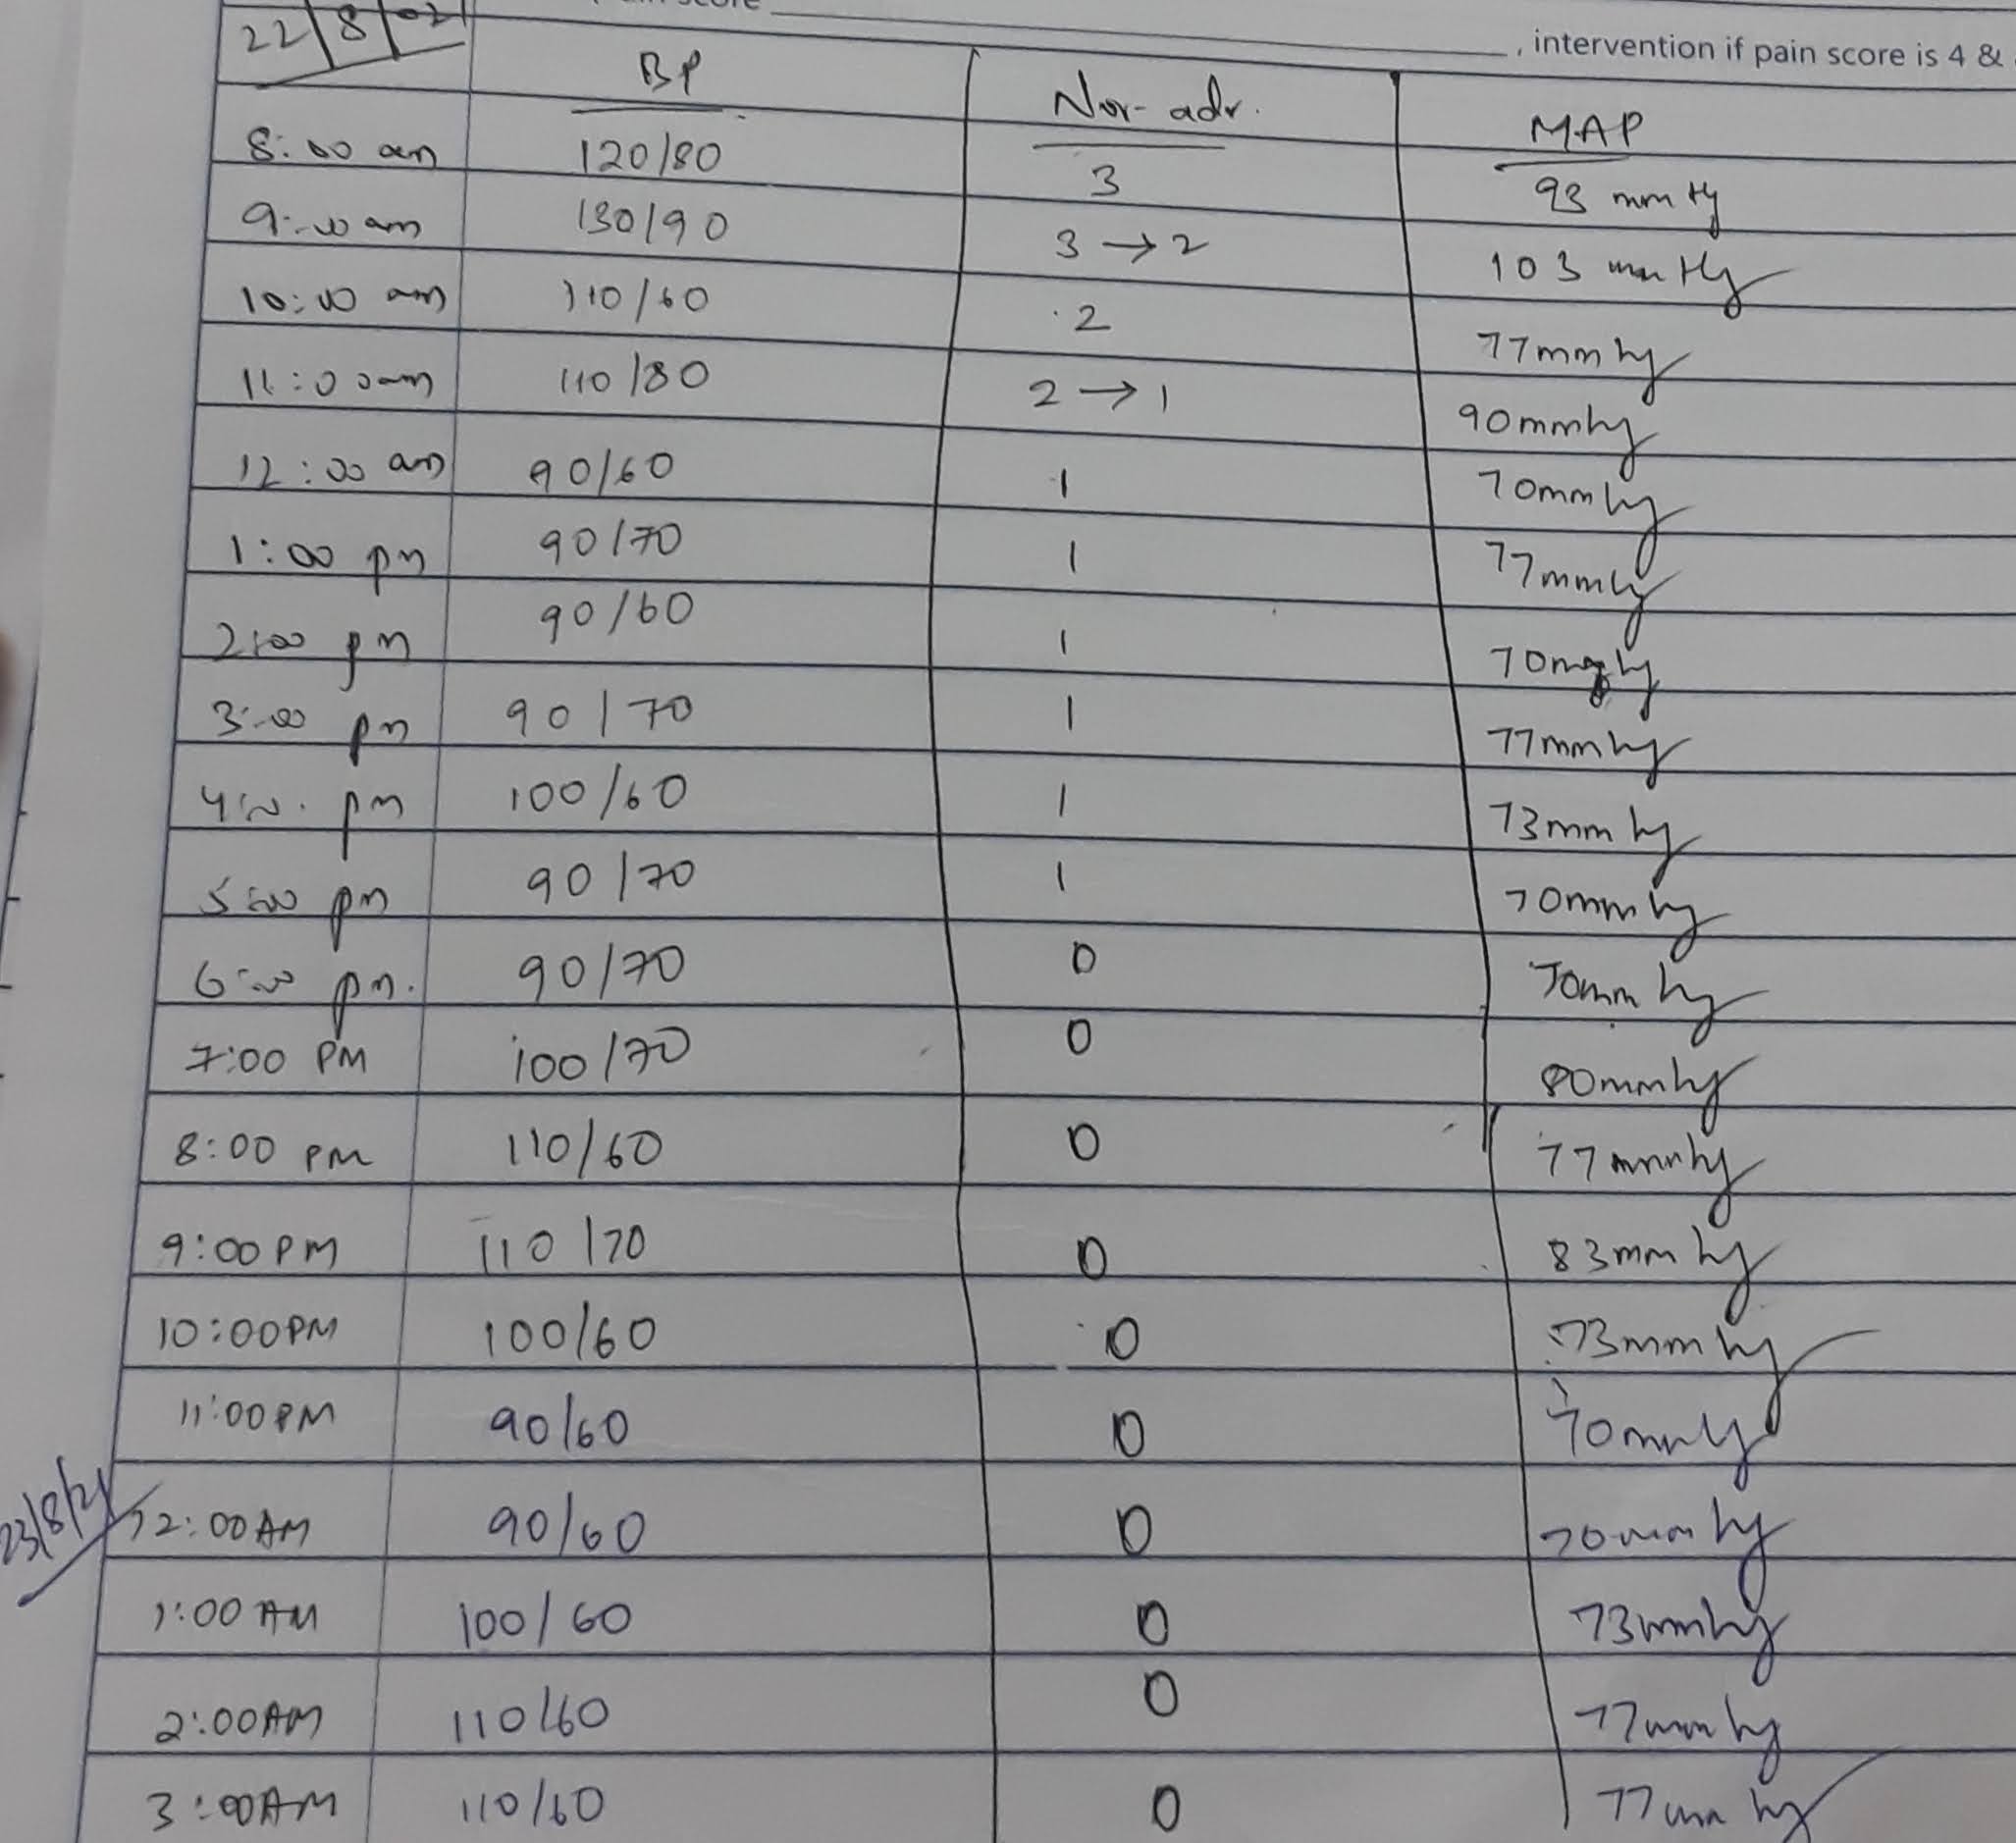 , intervention if pain score is 4 &
22/8/02 BP Nor-adr. MAP
8:00 am 120/80 3 93 mmHg
9:00 am 130/90 3 → 2 103 mmHg
10:00 am 110/60 2 77mmhg
11:00am 110/80 2 → 1 90mmhg
12:00 am 90/60 1 70mmhg
1:00 pm 90/70 1 77mmhg
2:00 pm 90/60 1 70mmhg
3:00 pm 90/70 1 77mmhg
4:00 pm 100/60 1 73mmhg
5:00 pm 90/70 1 70mmhg
6:00 pm. 90/70 0 70mmhg
7:00 PM 100/70 0 80mmhg
8:00 PM 110/60 0 77mmhg
9:00PM 110/70 0 83mmhg
10:00PM 100/60 0 73mmhg
11:00PM 90/60 0 70mmhg
23/8/21 12:00AM 90/60 0 70mmhg
1:00 AM 100/60 0 73mmhg
2:00AM 110/60 0 77mmhg
3:00AM 110/60 0 77mmhg